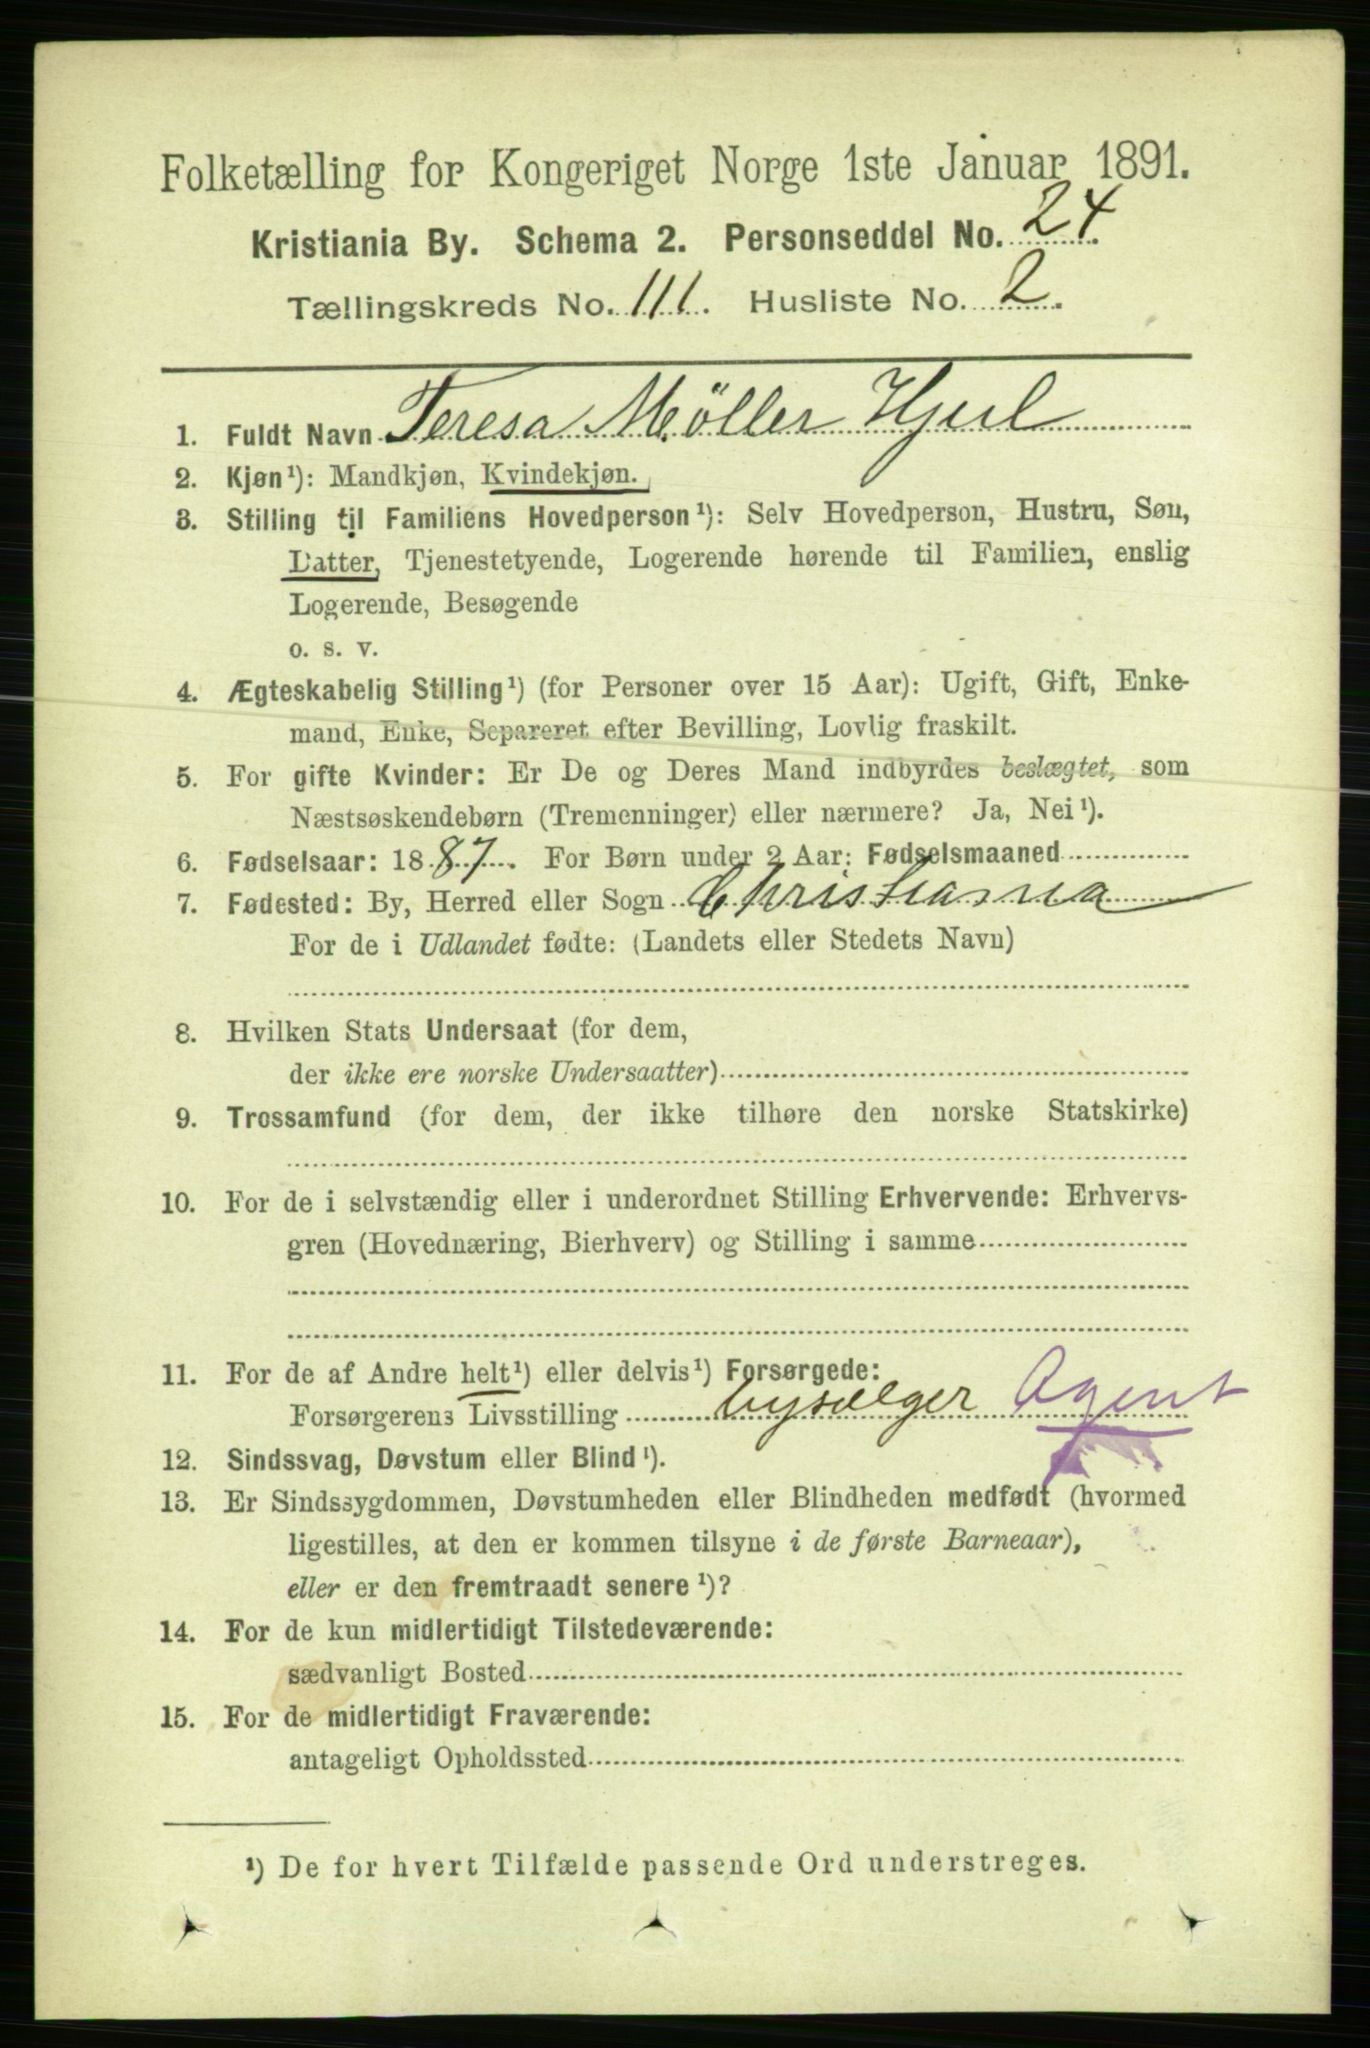 Folketælling for Kongeriget Norge 1ste Januar 1891.
Kristiania By. Schema 2. Personseddel No. 24.
Tællingskreds No. 111. Husliste No. 2.
1. Fuldt Navn Teresa Møller Hjul
2. Kjøn¹): Mandkjøn, Kvindekjøn.
3. Stilling til Familiens Hovedperson¹): Selv Hovedperson, Hustru, Søn,
Datter, Tjenestetyende, Logerende hørende til Familien, enslig
Logerende, Besøgende
o. s. v.
4. Ægteskabelig Stilling¹) (for Personer over 15 Aar): Ugift, Gift, Enke-
mand, Enke, Separeret efter Bevilling, Lovlig fraskilt.
5. For gifte Kvinder: Er De og Deres Mand indbyrdes beslægtet, som
Næstsøskendebørn (Tremenninger) eller nærmere? Ja, Nei¹).
6. Fødselsaar: 1887. For Børn under 2 Aar: Fødselsmaaned
7. Fødested: By, Herred eller Sogn Christiania
For de i Udlandet fødte: (Landets eller Stedets Navn)
8. Hvilken Stats Undersaat (for dem,
der ikke ere norske Undersaatter)
9. Trossamfund (for dem, der ikke tilhøre den norske Statskirke)
10. For de i selvstændig eller i underordnet Stilling Erhvervende: Erhvervs-
gren (Hovednæring, Bierhverv) og Stilling i samme
11. For de af Andre helt¹) eller delvis¹) Forsørgede:
Forsørgerens Livsstilling bysælger Agent
12. Sindssvag, Døvstum eller Blind¹).
13. Er Sindssygdommen, Døvstumheden eller Blindheden medfødt (hvormed
ligestilles, at den er kommen tilsyne i de første Barneaar),
eller er den fremtraadt senere¹)?
14. For de kun midlertidigt Tilstedeværende:
sædvanligt Bosted
15. For de midlertidigt Fraværende:
antageligt Opholdssted
¹) De for hvert Tilfælde passende Ord understreges.